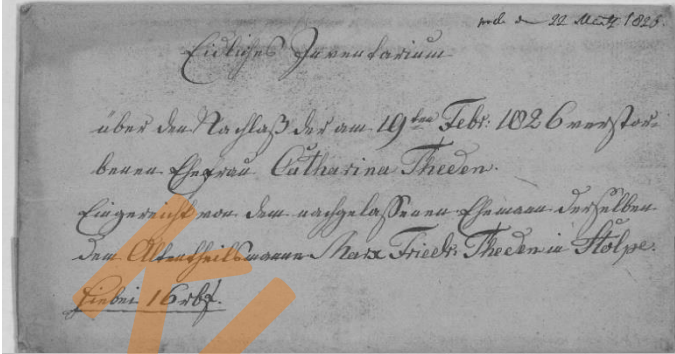 den 22 Märtz 1826.
Eidliches Inventarium
über den Nachlaß der am 19ten Febr: 1826 verstor-
benen Ehefrau Catharina Theden.
Eingereicht von dem nachgelassenen Ehemann derselben
dem Altentheilsmann Marx Friedr: Theden in Stolpe.
Hiebei 16 rb